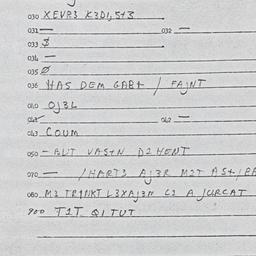 030 XEVR3 K3DI,5+3
031 — 032 —
033 $
034 —
035 Ø
036 HAS DEM GAB+ / FAJNT
040 OJ3L
041 — 042 —
043 COUM
050 — AUT VAS+N D2HENT
070 — / HART3 AJ3R M2T
080 M3 L3XAJ3M C2 A JURCAT
900 T1T Q1TUT